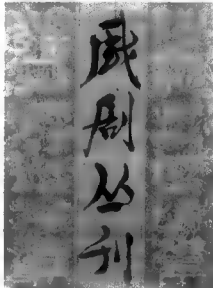 戏剧丛刊